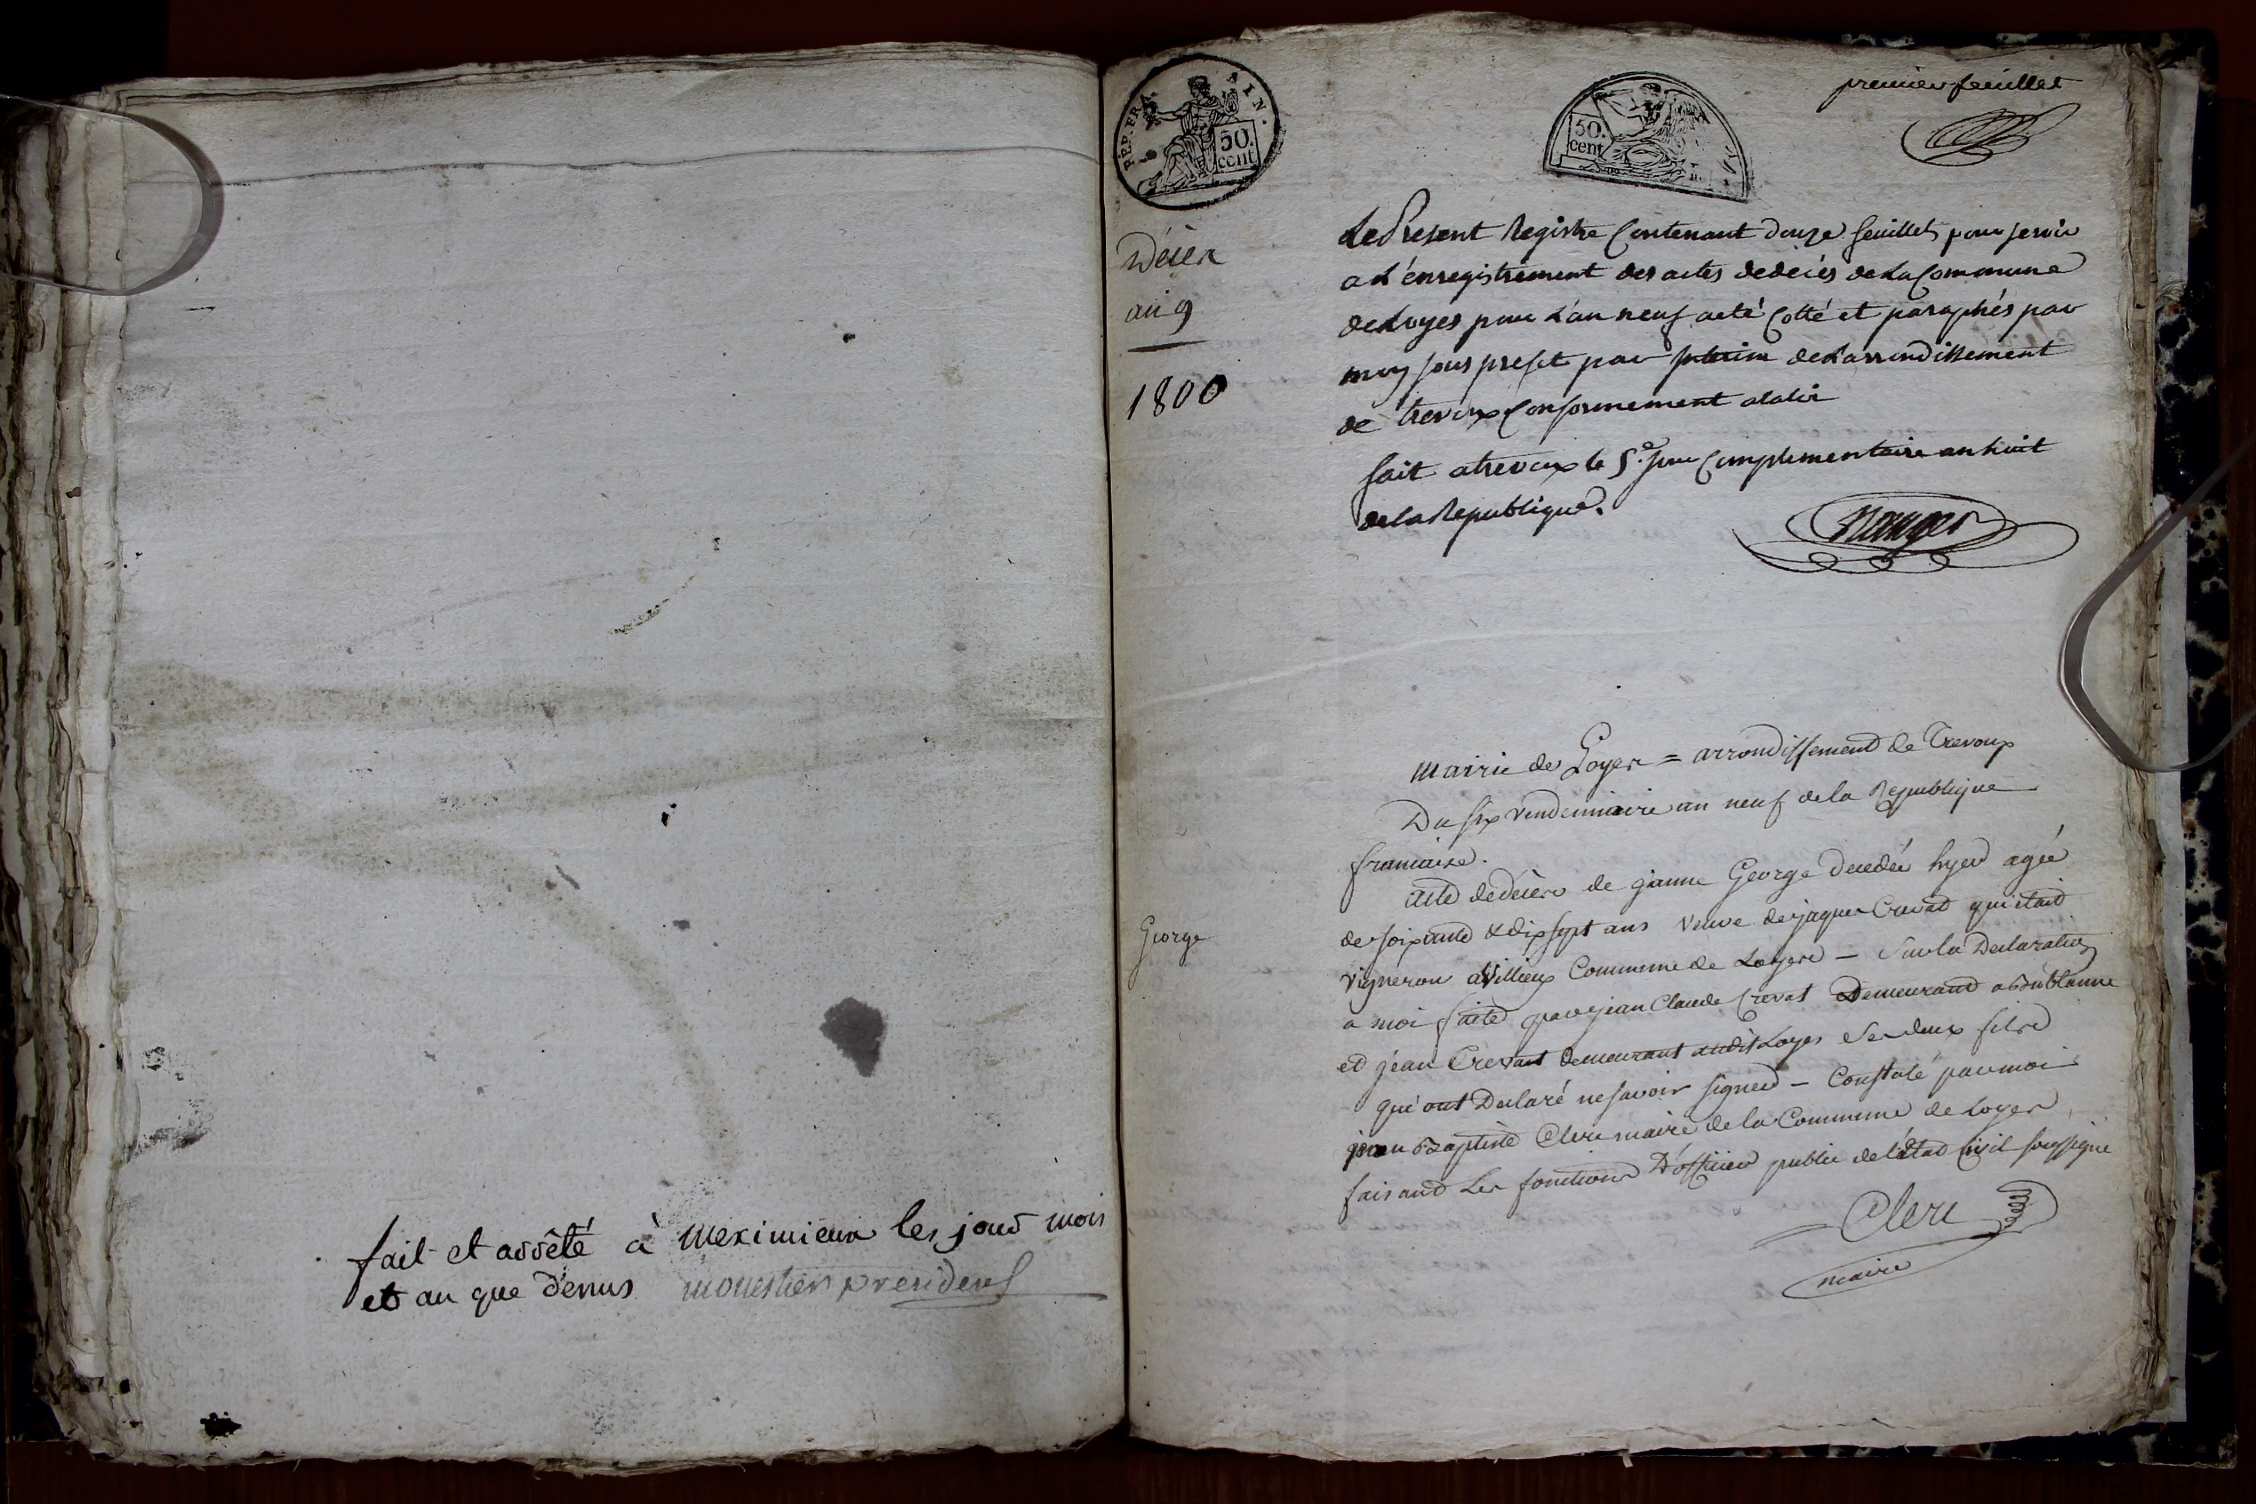 fait et arrêté à Meximieux les jour mois
et an que dénus monestier président
REP. FRA. AIN.
50.
cent
50.
cent
premier feuillet
Décès
an 9
1800
Le Present Registre Contenant douze feuillets pour servir
a L'énregistrement des actes de deciés de La Commune
de Loyes pour L'an neuf acté Cotté et paraphés par
moy sous prefet par interim de L'arrondissement
de trevoux Conformement a la loi
fait a trevoux le 5.e jour Complementaire an huit
de la Republique.
Mairie de Loyes = arrondissement de Trevoux
Du six vendemiaire an neuf de la Republique
francaise.
George
acte de décès de janne George decedée hyer agée
de soixante & dix sept ans veuve de jaques Crevat qui était
vigneron a Villieux Commune de Loyes - Sur la Declaration
a moi faite par jean Claude Crevat Demeurant a
et jean Crevat demeurant audit Loyes Ses deux fils
qui ont Declaré ne savoir signer - Constaté par moi
jean Baptiste Clerc maire de la Commune de Loyes
faisant Les fonctions D'officier public de l'état Civil soussigné
Clerc
maire